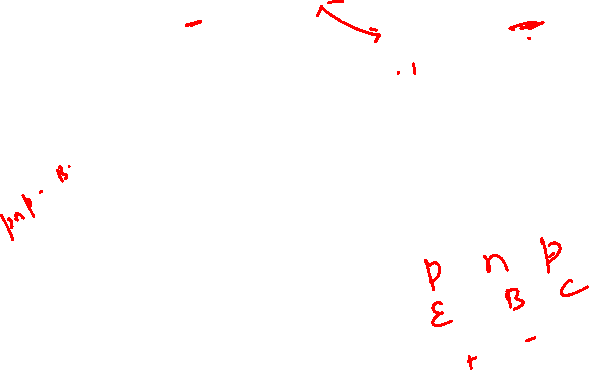 pnp B
p n p
E B C
+ -